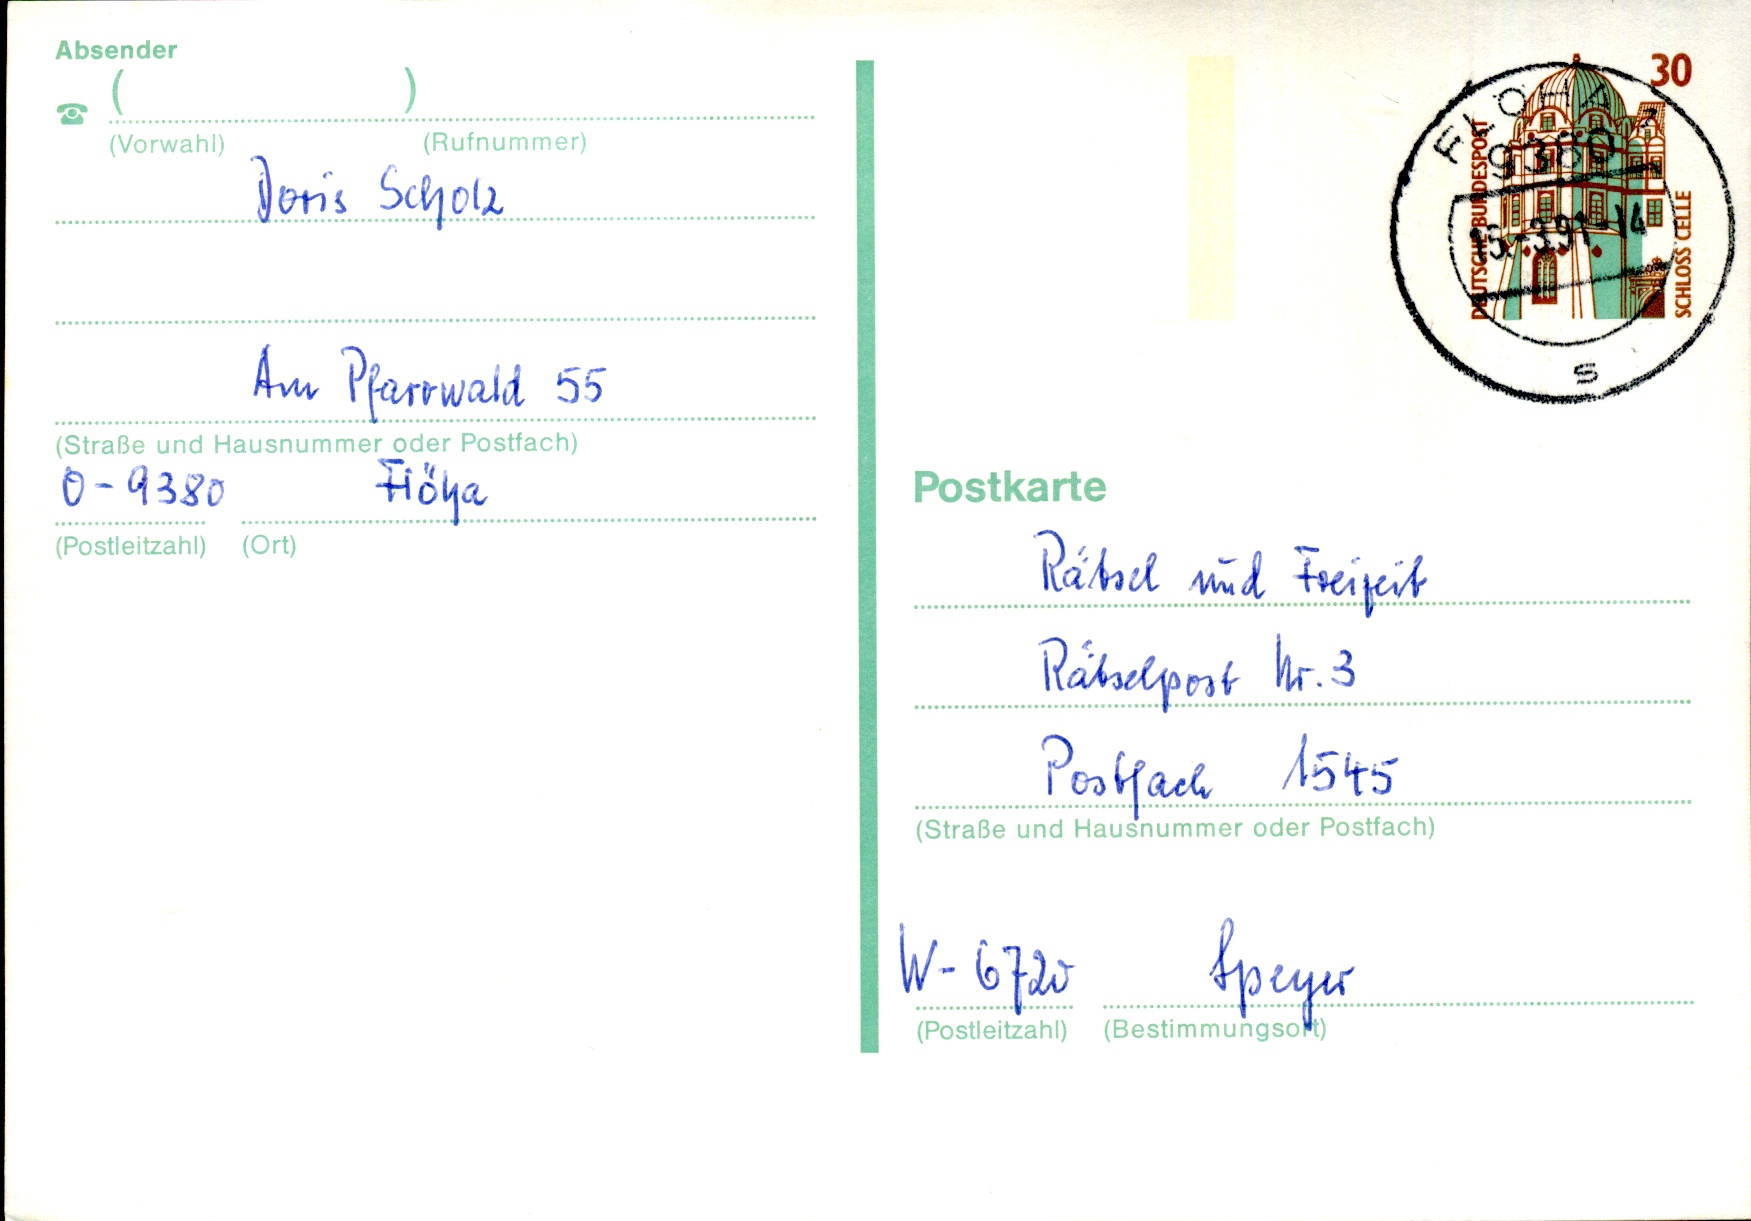 Absender
( )
(Vorwahl) (Rufnummer)
Doris Scholz
Am Pfarrwald 55
(Straße und Hausnummer oder Postfach)
O-9380 Flöha
(Postleitzahl) (Ort)
30
DEUTSCHE BUNDESPOST
SCHLOSS CELLE
FLÖHA 2
9380
15.-3.91-14
s
Postkarte
Rätsel und Freizeit
Rätselpost Nr. 3
Postfach 1545
(Straße und Hausnummer oder Postfach)
W-6720 Speyer
(Postleitzahl) (Bestimmungsort)